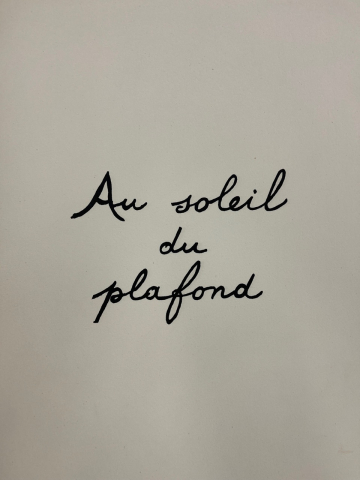 Au soleil
du
plafond